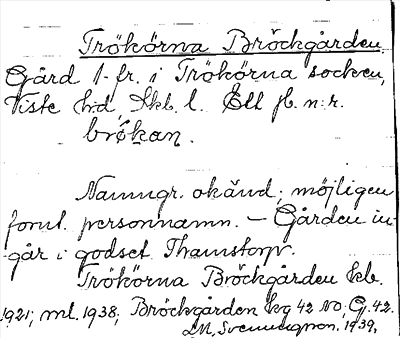 Trökörna Bröckgården.
Gård 1-fr. i Trökörna socken,
Viste hd Skb. l. Ell fb. n:r.
brökan.
Namngr. okänd; möjligen
fornt. personnamn. – Gården in-
går i godset Thamstorp.
Trökörna Bröckgården kb.
1921; ml. 1938; Bröckgården kg 42 NO; G. 42.
Svenungson. 1939,